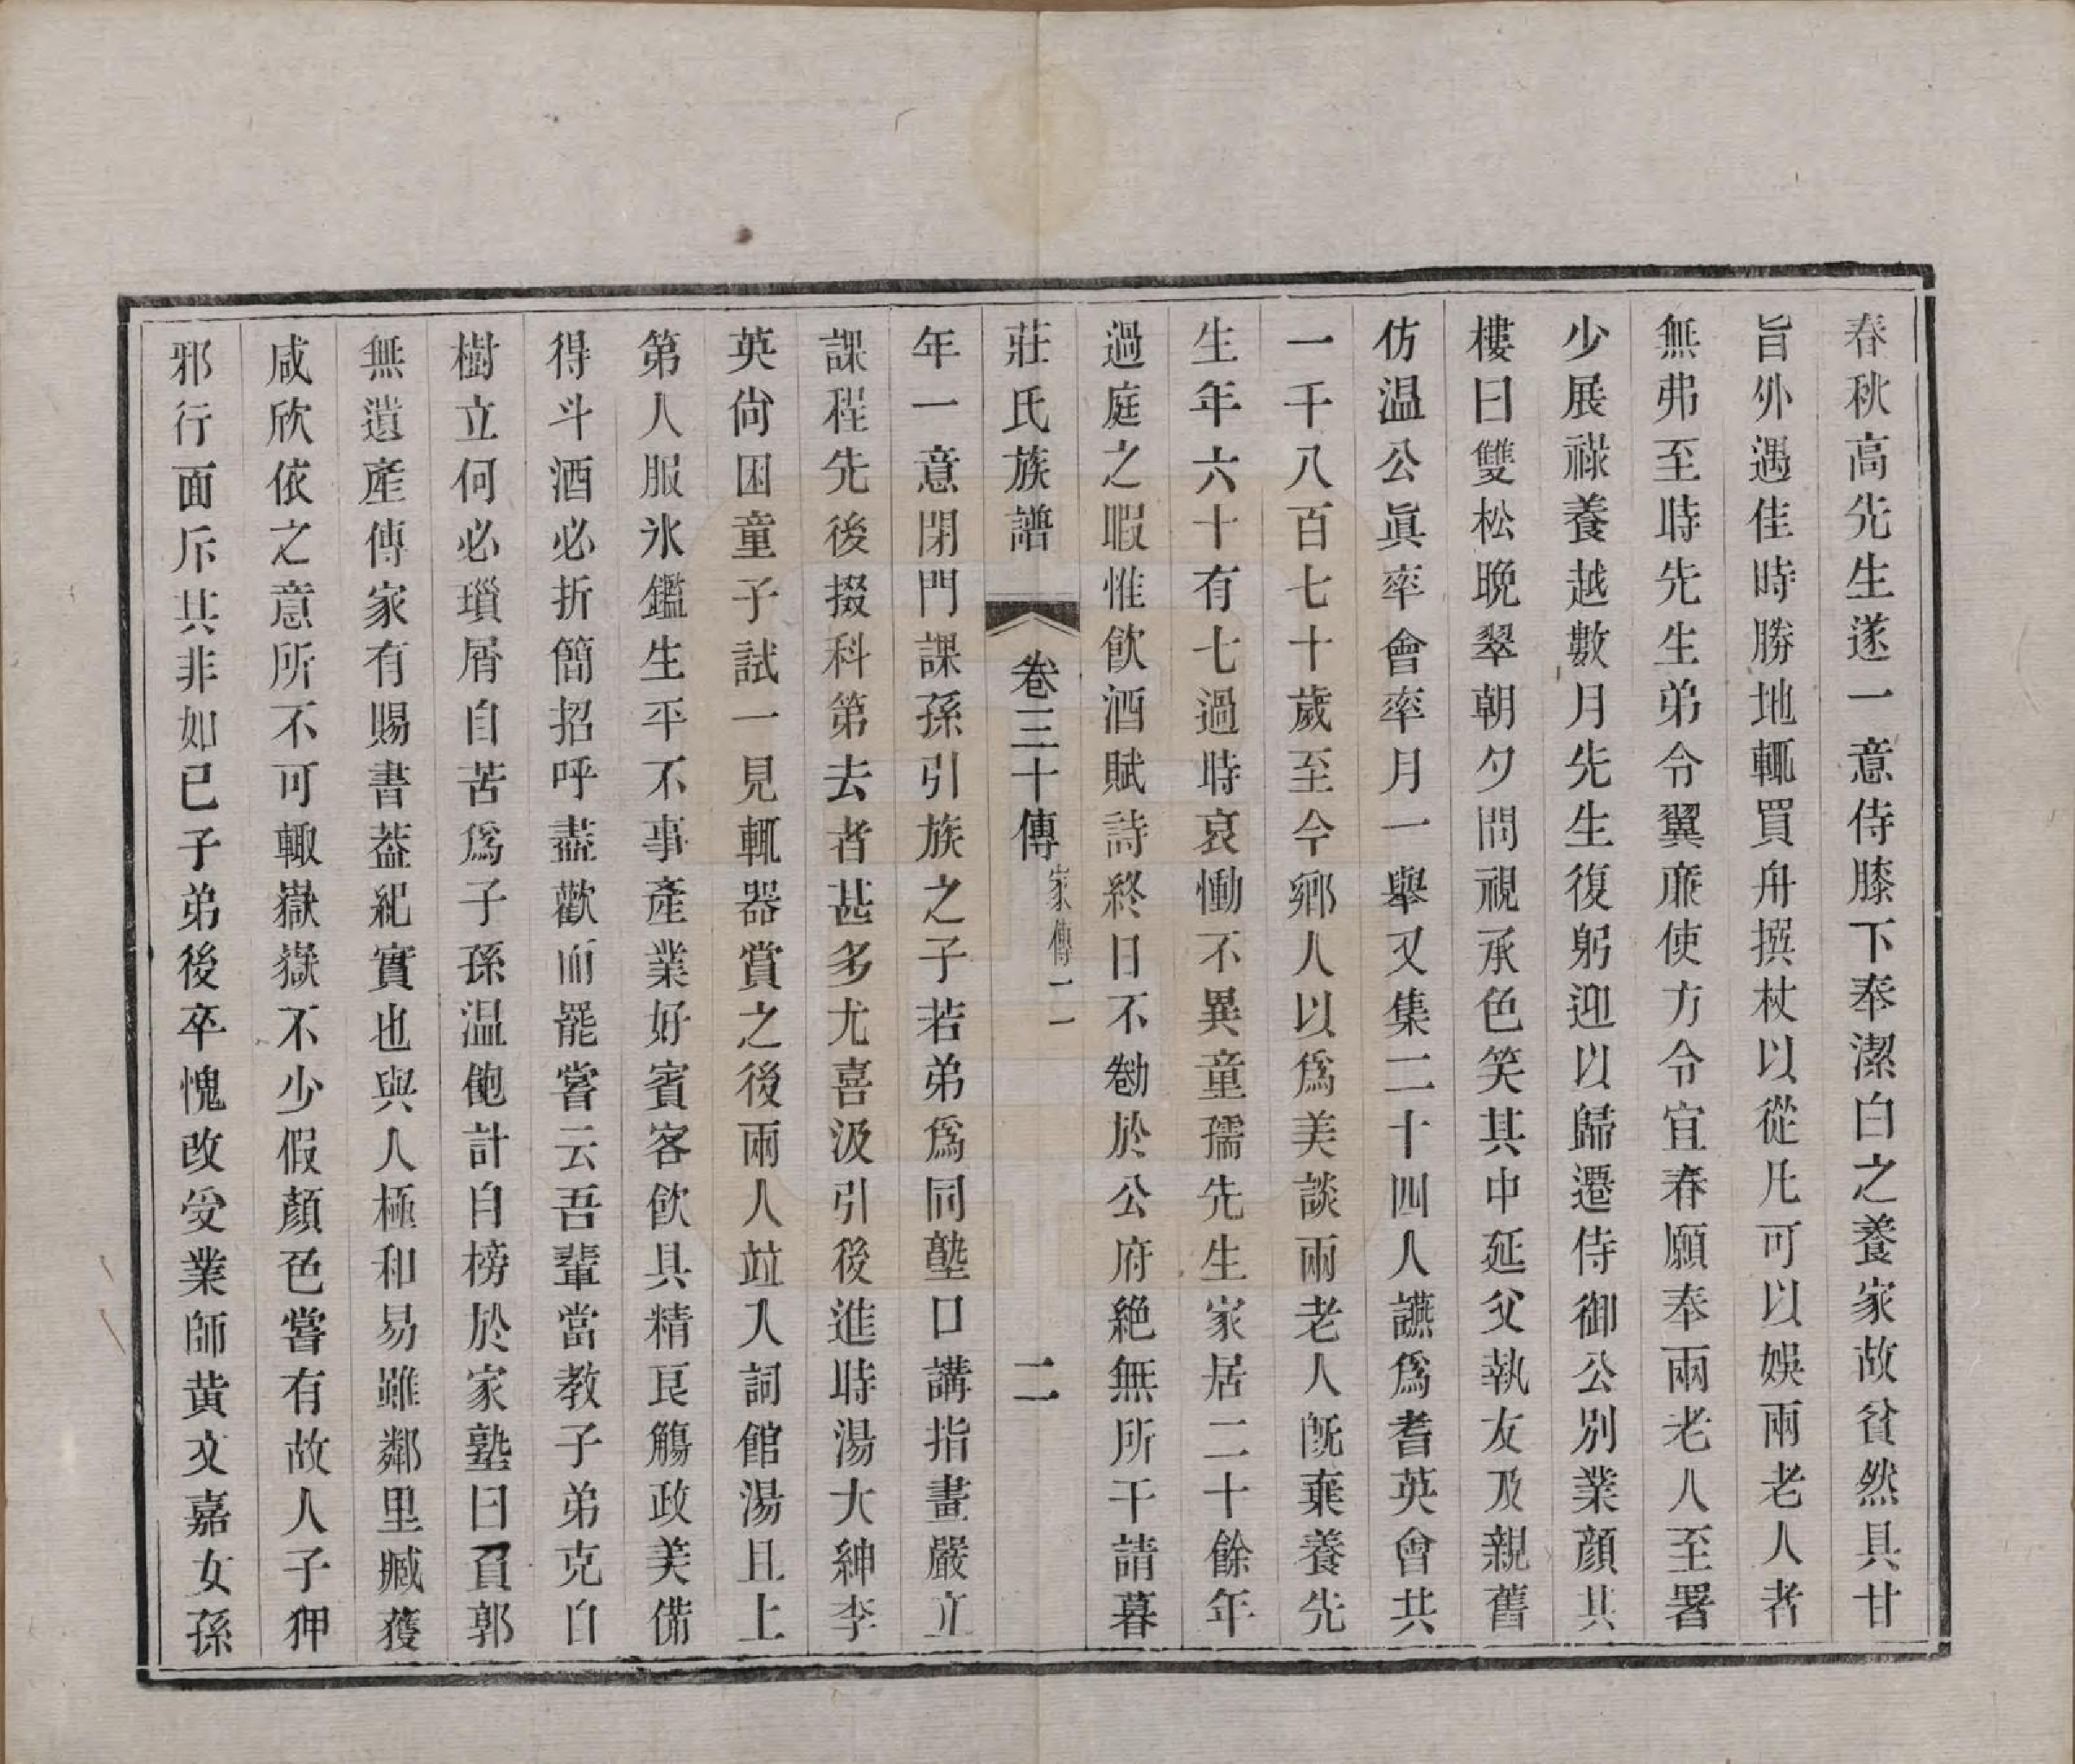 春秋高先生遂一意侍膝下奉潔白之養家故貧然具甘
旨外遇佳時勝地輒買舟撰杖以從凡可以娛兩老人者
無弗至時先生弟令翼廉使方令宜春願奉兩老人至署
少展祿養越數月先生復躬迎以歸遷侍御公別業顔其
樓曰雙松晩翠朝夕問視承色笑其中延父執友及親舊
仿温公眞率會率月一舉又集二十四人讌爲耆英會共
一千八百七十歲至今鄉人以爲美談兩老人旣棄養先
生年六十有七過時哀慟不異童孺先生家居二十餘年
過庭之暇惟飮酒賦詩終日不勌於公府絶無所干請暮
莊氏族譜 卷三十傳 家傳二 二
年一意閉門課孫引族之子若弟爲同塾口講指畫嚴立
課程先後掇科第去者甚多尤喜汲引後進時湯大紳李
英尙困童子試一見輒器賞之後兩人竝入詞館湯且上
第人服氷鑑生平不事產業好賓客飮具精良觴政美備
得斗酒必折簡招呼盡歡而罷嘗云吾輩當教子弟克自
樹立何必瑣屑自苦爲子孫温飽計自榜於家塾曰負郭
無遺產傳家有賜書葢紀實也與人極和易雖鄰里臧獲
咸欣依之意所不可輙嶽嶽不少假顔色嘗有故人子狎
邪行面斥其非如已子弟後卒愧改受業師黄文嘉女孫